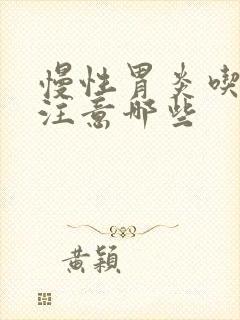 慢性胃炎喫
注意哪些
黄穎